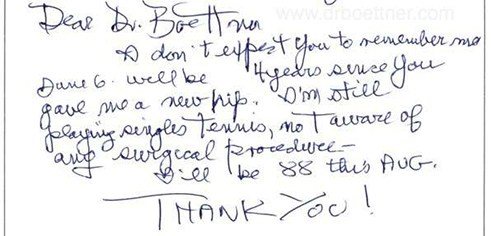 www.drboettner.com
Dear Dr. Boettner
I don't expect you to remember me
June 6. will be 4 years since you
gave me a new hip. I'm still
playing singles tennis, not aware of
any surgical procedure—
I'll be 88 this AUG.
THANK YOU!